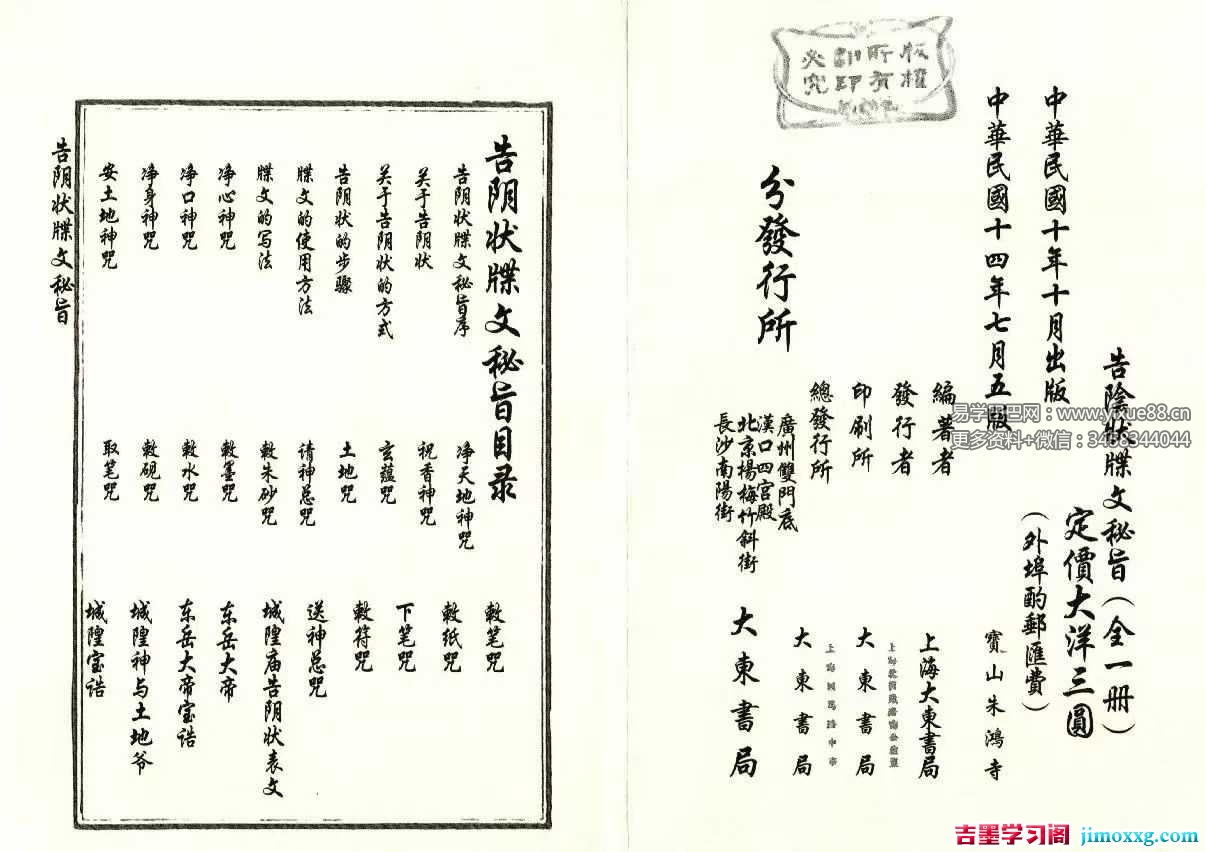 版權
所有
翻印
必究
告陰狀牒文秘旨（全一册）
定價大洋三圓
（外埠酌郵匯費）
中華民國十年十月出版
中華民國十四年七月五版
編著者
寶山朱鴻寺
發行者
上海大東書局
印刷所
大東書局
總發行所
大東書局
分發行所
廣州雙門底
漢口四宫殿
北京楊梅竹斜街
長沙南陽街
大東書局
告阴状牒文秘旨目录
告阴状牒文秘旨序
关于告阴状
关于告阴状的方式
告阴状的步骤
牒文的使用方法
牒文的写法
净心神咒
净口神咒
净身神咒
安土地神咒
净天地神咒
祝香神咒
玄蕴咒
土地咒
请神总咒
敕朱砂咒
敕墨咒
敕水咒
敕砚咒
取笔咒
敕笔咒
敕纸咒
下笔咒
敕符咒
送神总咒
城隍庙告阴状表文
东岳大帝
东岳大帝宝诰
城隍神与土地爷
城隍宝诰
告阴状牒文秘旨
易学巴巴网：www.yixue88.cn
更多资料+微信：3468344044
吉墨学习阁 jimoxxg.com